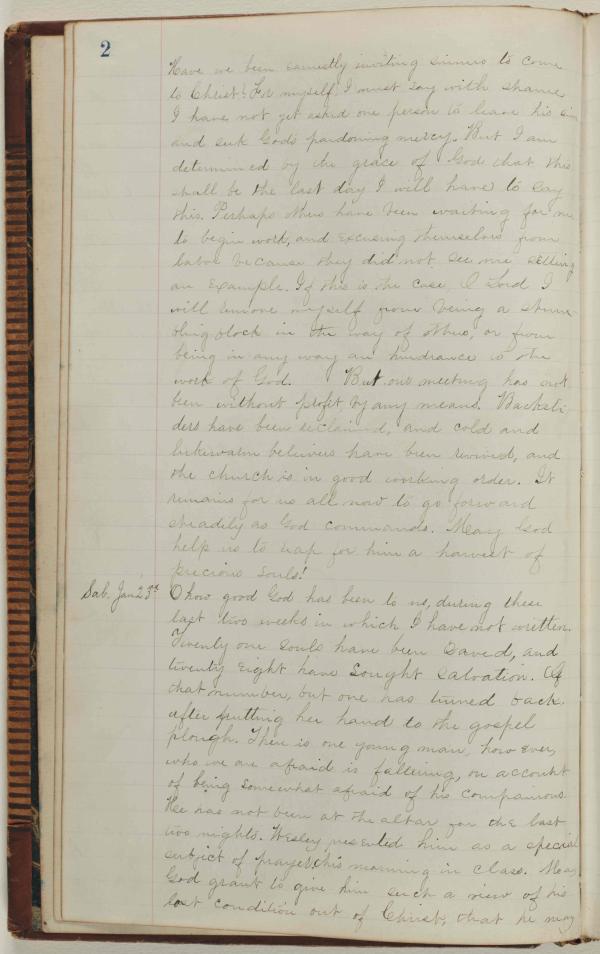 2
Have we been earnestly inviting sinners to come
to Christ? For myself I must say with shame
I have not yet asked one person to leave his sin
and seek God's pardoning mercy. But I am
determined by the grace of God that this
shall be the last day I will have to say
this. Perhaps others have been waiting for me
to begin work, and excusing themselves from
labor because they did not see me setting
an example. If this is the case, O Lord I
will remove myself from being a stum-
bling block in the way of others, or from
being in any way an hindrance to the
work of God. But our meeting has not
been without profit, by any means. Backsli-
ders have been reclaimed, and cold and
lukewarm believers have been revived, and
the church is in good working order. It
remains for us all now to go forward
steadily as God commands. May God
help us to reap for him a harvest of
precious souls!
Sab. Jan 23rd O how good God has been to us, during these
last two weeks in which I have not written.
Twenty one souls have been saved, and
twenty eight have sought salvation. Of
that number, but one has turned back
after putting her hand to the gospel
plough. There is one young man, however,
who we are afraid is faltering, on account
of being somewhat afraid of his companions.
He has not been at the altar for the last
two nights. Wesley presented him as a special
subject of prayer this morning in class. May
God grant to give him such a view of his
lost condition out of Christ, that he may